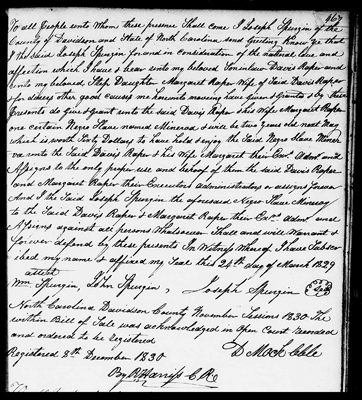 467
To all People unto Whom these presence Shall come I Joseph Spurgin of the
County of Davidson and State of North Carolina send Greeting Know ye that
I the said Joseph Spurgin for and in consideration of the natural love and
affection which I have & bear unto my beloved Soninlaw Davis Raper and
unto my beloved Step Daughter Margaret Raper Wife of Said Davis Raper
& for divers other good causes me hereunto moveing have given & granted & by these
Presents do give & grant unto the said Davis Raper & his Wife Margaret Raper
one certain Negro Slave named Minerva & will be two years one next May
which is worth Forty Dollars to have hold & enjoy the Said Negro Slave Miner
va unto the Said Davis Raper & his Wife Margaret their Exrs. Admrs. and
Assigns to the only proper use and behoof of them the said Davis Raper
and Margaret Raper their Executors administrators & assigns forever
And I the Said Joseph Spurgin the aforesaid Negro Slave
to the Said Davis Raper & Margaret Raper their Exrs. Admrs. and
Assigns against all persons Whatsoever Shall and will Warrant &
forever defend by these presents In Witness Whereof I have Subscr
ibed my name & affixed my Seal this 24th day of March 1829
attest
Wm Spurgin, John Spurgin, Joseph Spurgin Seal
North Carolina Davidson County November Sessions 1830 The
within Bill of Sale was acknowledged in Open Court recorded
and ordered to be registered
D Mock Clk
Registered 8th December 1830
By R Harriss C R